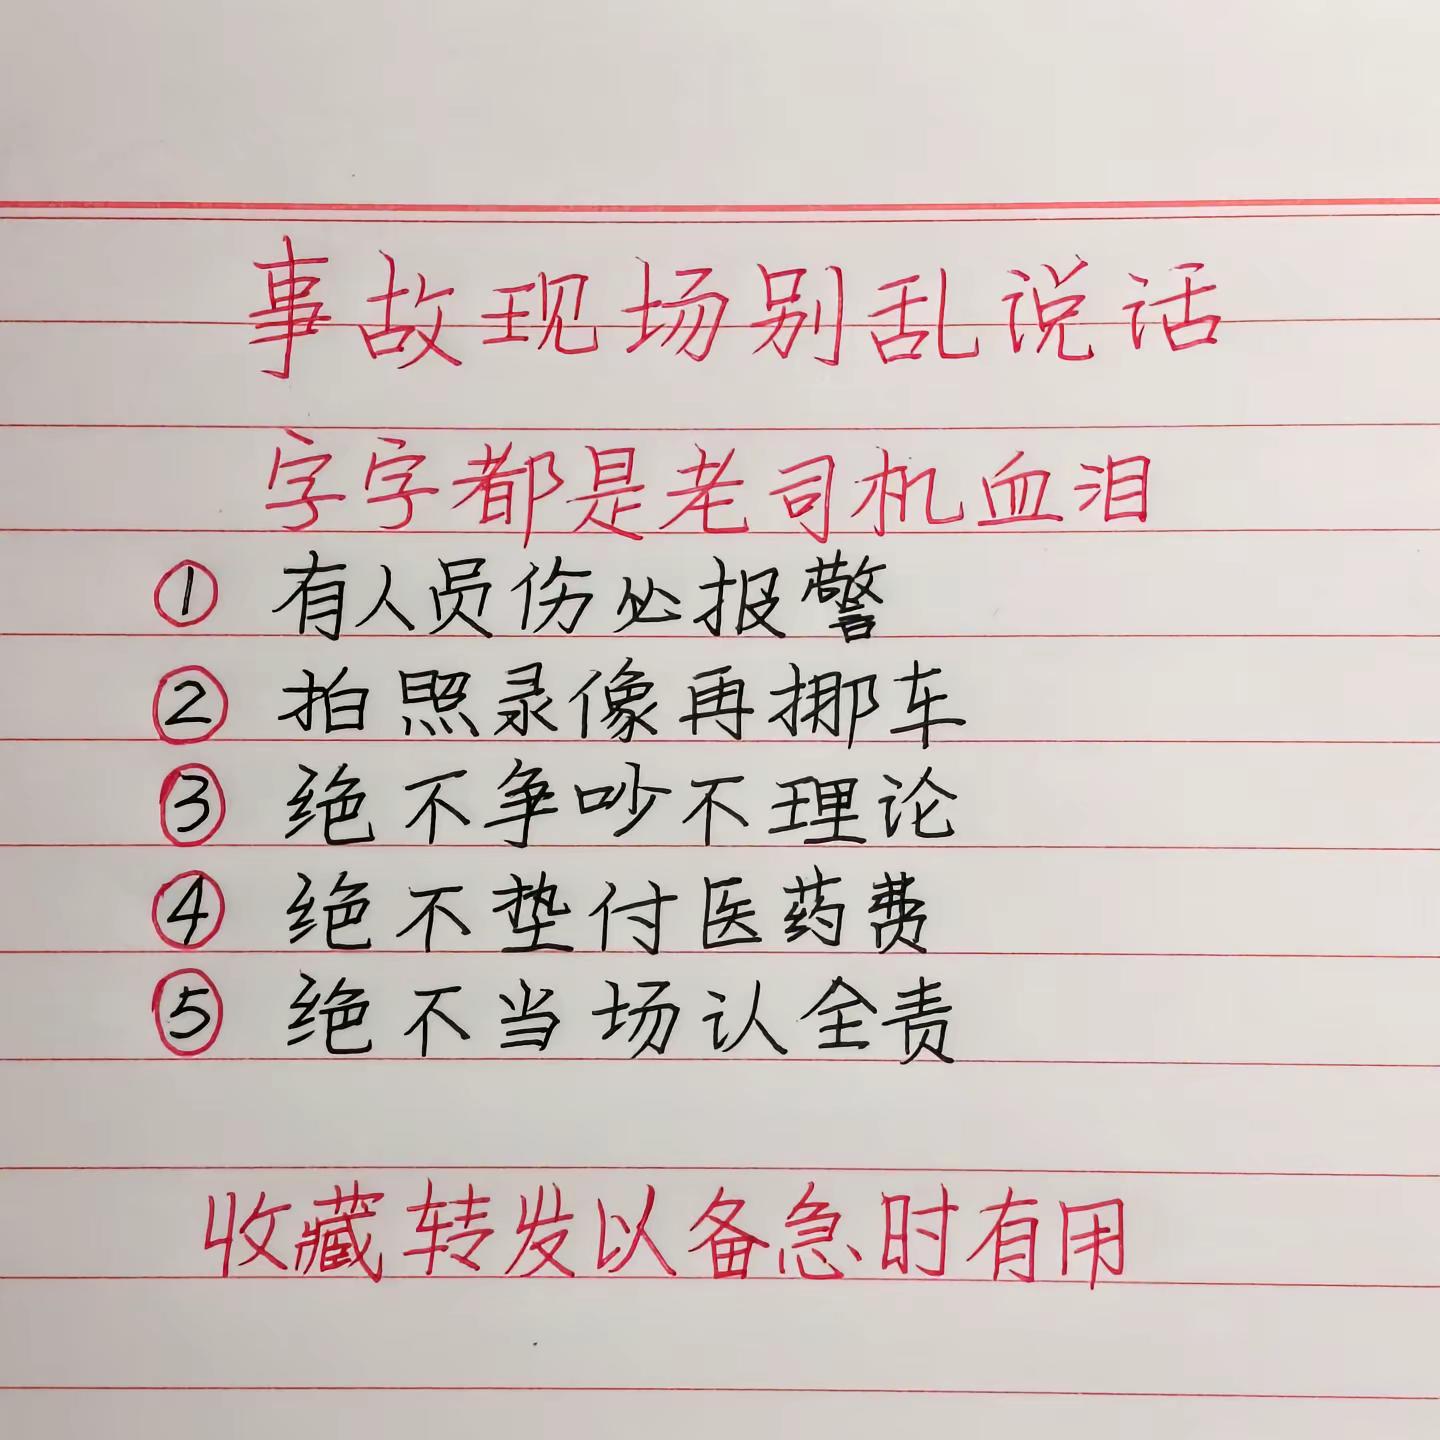 事故现场别乱说话
字字都是老司机血泪
① 有人员伤必报警
② 拍照录像再挪车
③ 绝不争吵不理论
④ 绝不垫付医药费
⑤ 绝不当场认全责
收藏转发以备急时有用